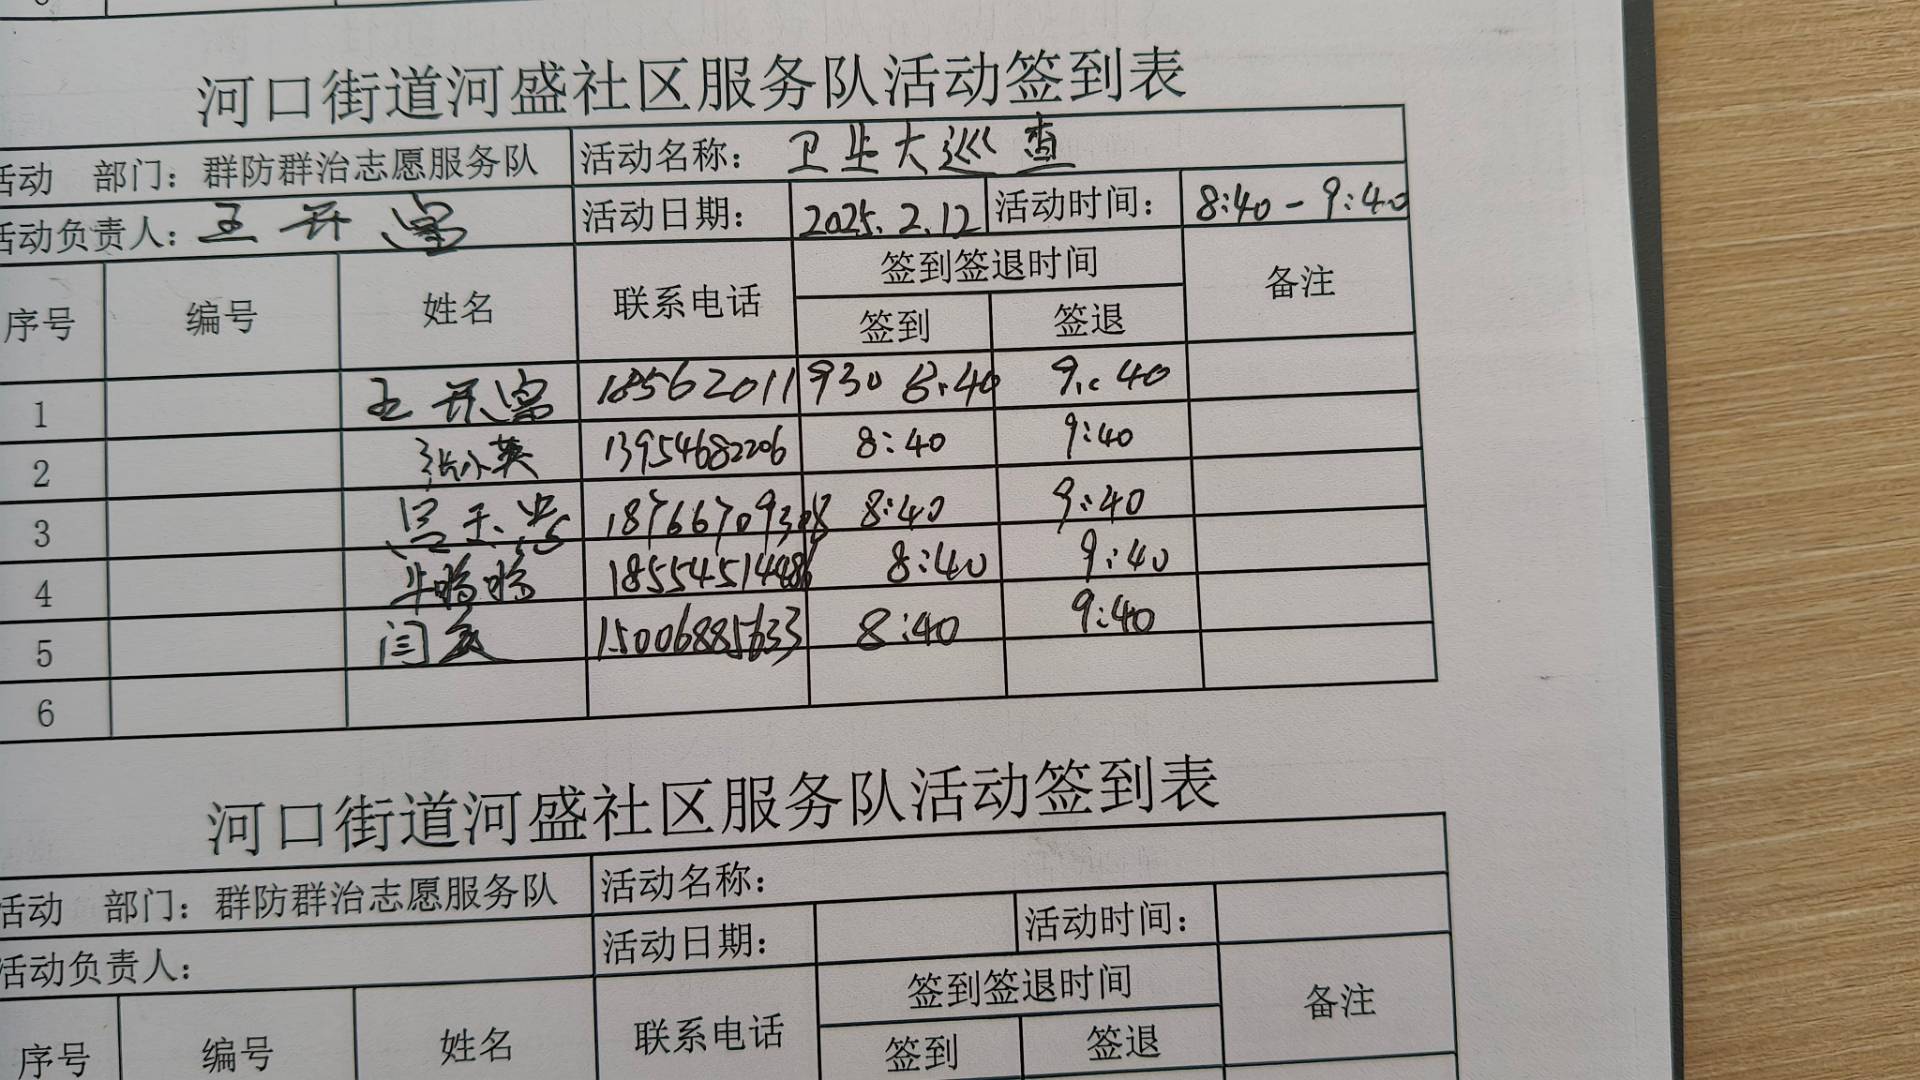 河口街道河盛社区服务队活动签到表
活动 部门：群防群治志愿服务队 活动名称：卫生大巡查
活动负责人：王开富 活动日期：2025.2.12 活动时间：8:40-9:40
序号 编号 姓名 联系电话 签到签退时间 备注
签到 签退
1 王开富 18562011930 8:40 9:40
2 张小英 13954682206 8:40 9:40
3 8:40 9:40
4 8:40 9:40
5 15006885633 8:40 9:40
6
河口街道河盛社区服务队活动签到表
活动 部门：群防群治志愿服务队 活动名称：
活动负责人： 活动日期： 活动时间：
序号 编号 姓名 联系电话 签到签退时间 备注
签到 签退